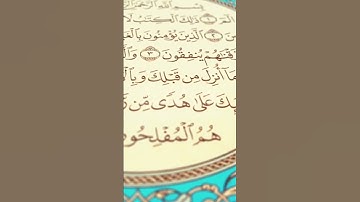 بِسْمِ اللَّهِ الرَّحْمَٰنِ
ذَٰلِكَ الْكِتَابُ لَا
٢ الَّذِينَ يُؤْمِنُونَ بِالْغَ
قْنَاهُمْ يُنفِقُونَ ٣
مَا أُنزِلَ مِن قَبْلِكَ وَبِا
ئِكَ عَلَىٰ هُدًى مِّن رَّ
هُمُ الْمُفْلِحُو